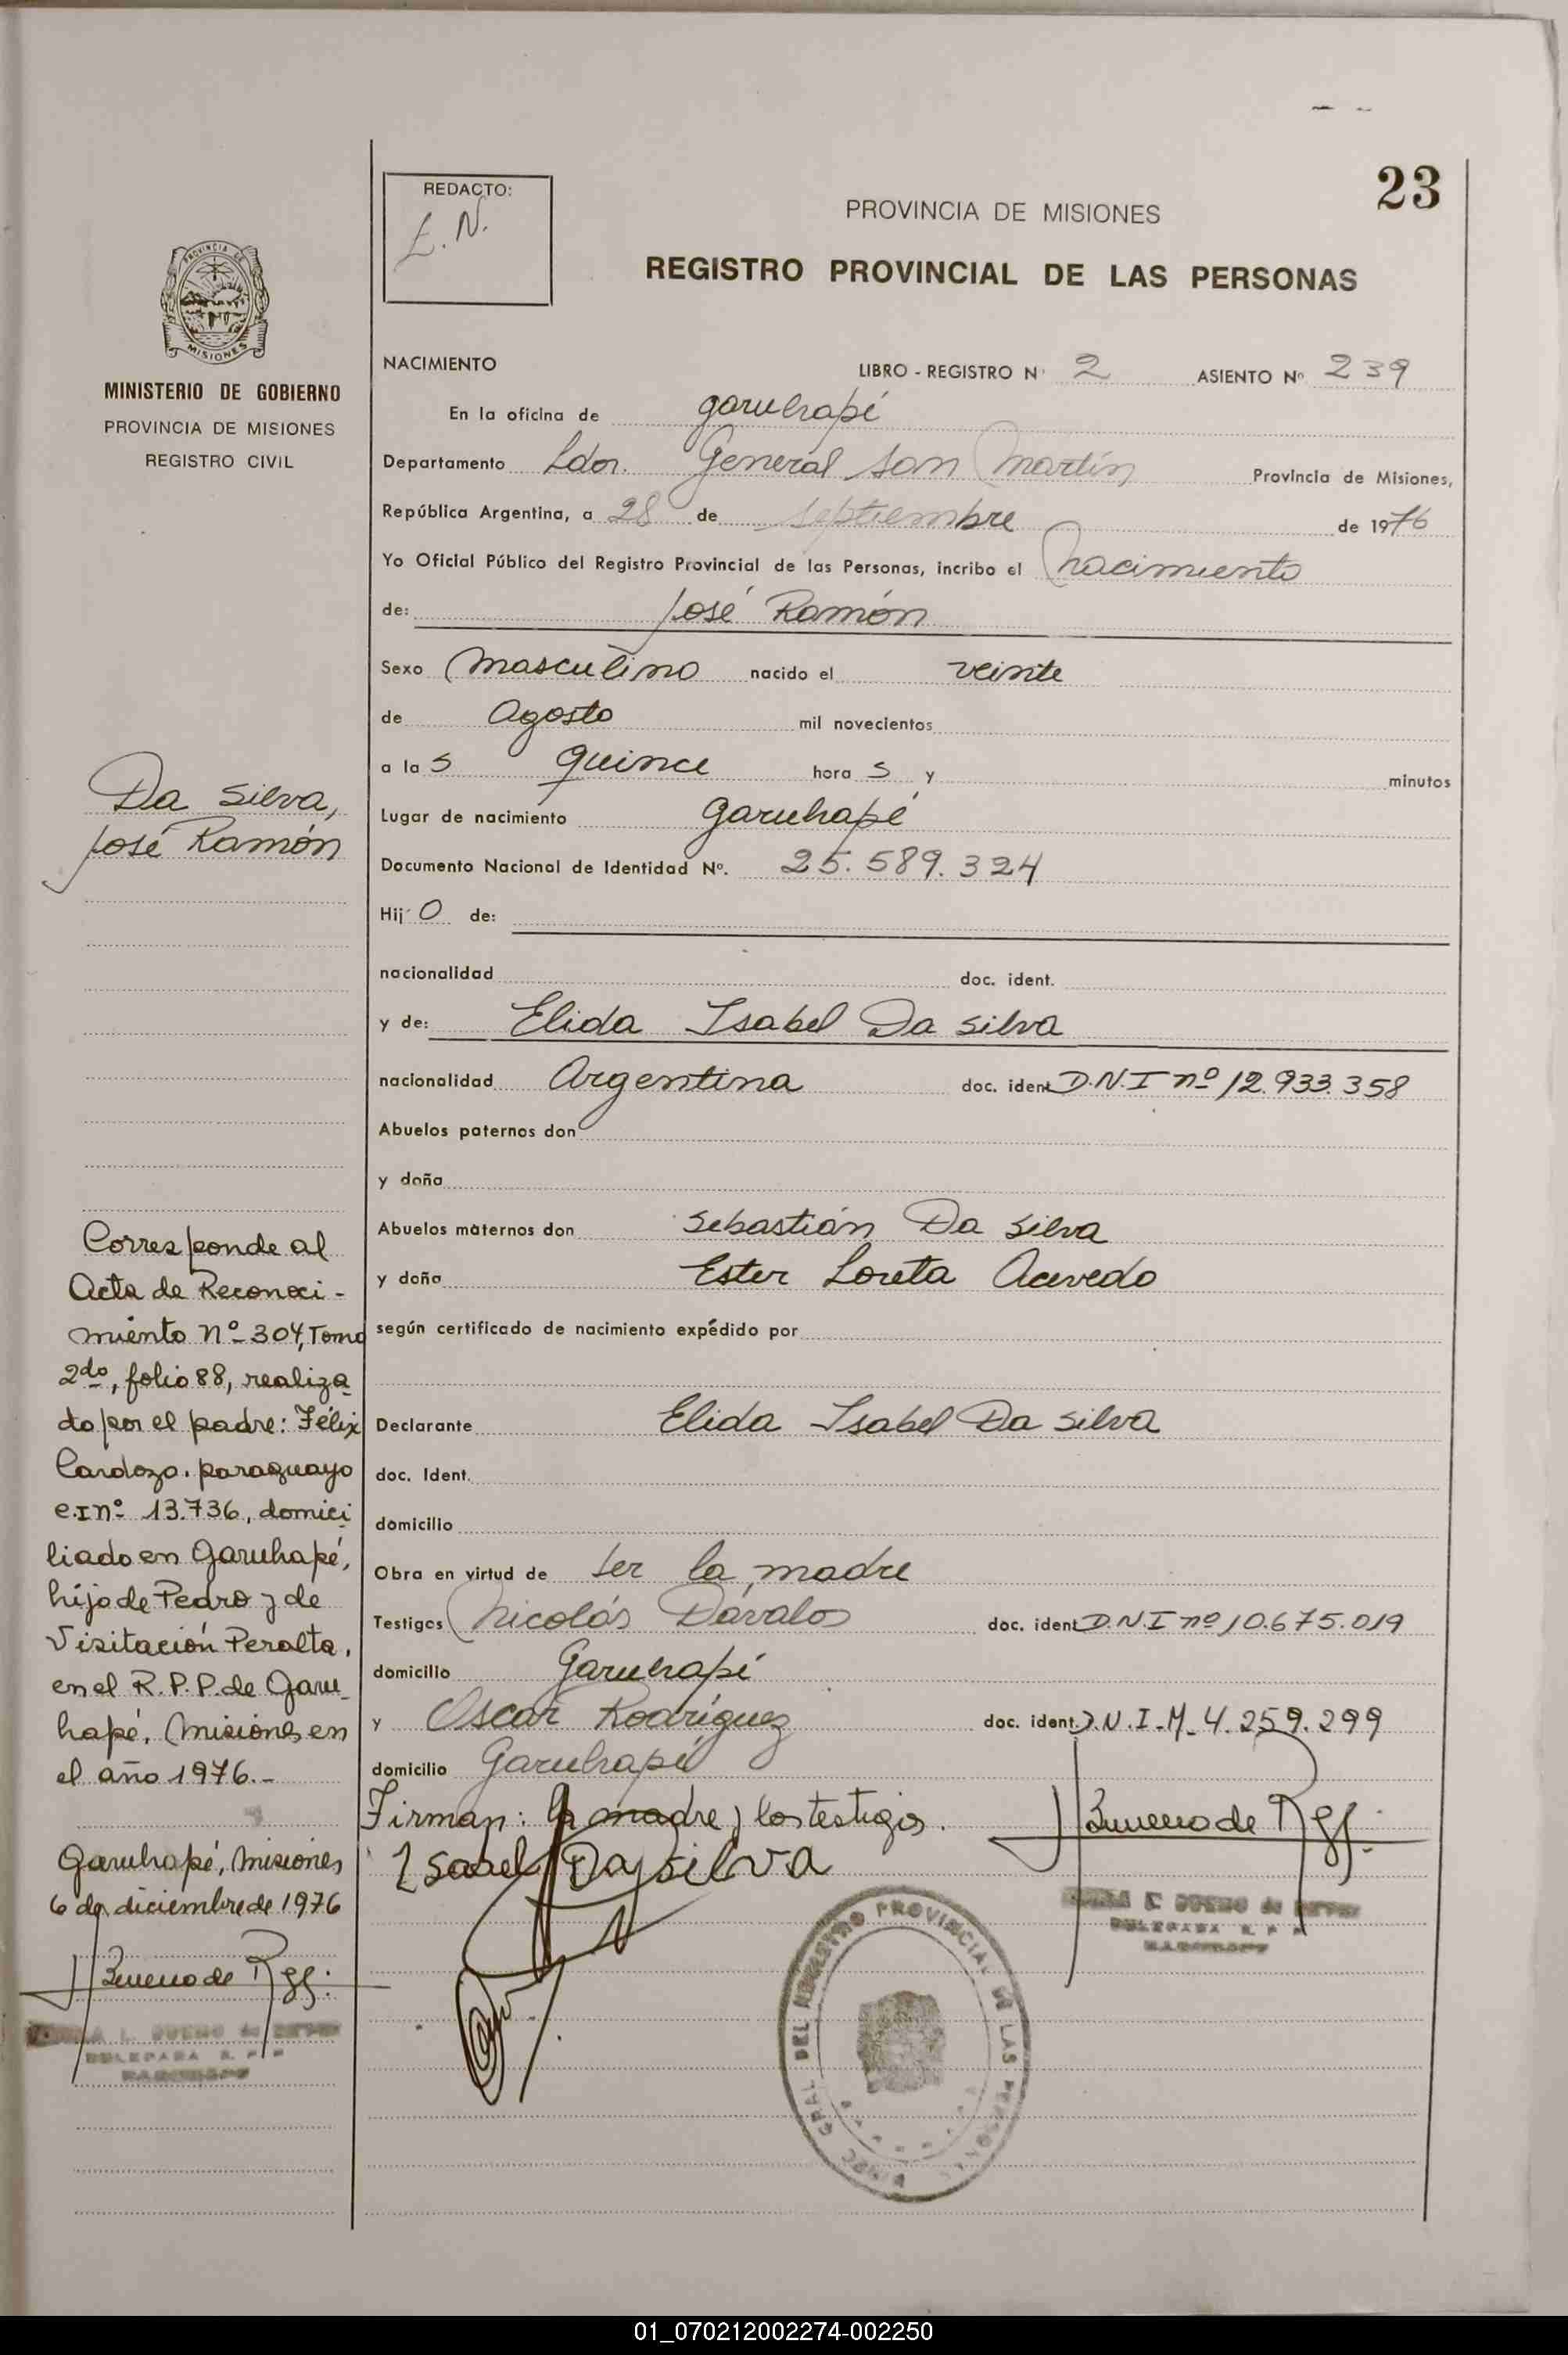 23
REDACTO:
E.N.
PROVINCIA DE MISIONES
REGISTRO PROVINCIAL DE LAS PERSONAS
MISIONES
MINISTERIO DE GOBIERNO
PROVINCIA DE MISIONES
REGISTRO CIVIL
Da Silva,
José Ramón
Corresponde al
Acta de Reconoci-
miento nº 304, Tomo
2do, folio 88, realiza
do por el padre: Félix
Cardozo. paraguayo
C.I nº 13.736, domici
liado en Garuhapé,
hijo de Pedro y de
Visitación Peralta,
en el R.P.P. de Garu
hapé, Misiones en
el año 1976.-
Garuhapé, Misiones
6 de diciembre de 1976
NACIMIENTO LIBRO - REGISTRO Nº 2 ASIENTO Nº 239
En la oficina de Garuhapé
Departamento Ldor. General San Martín Provincia de Misiones,
República Argentina, a 28 de septiembre de 1976
Yo Oficial Público del Registro Provincial de las Personas, incribo el nacimiento
de: José Ramón
Sexo masculino nacido el veinte
de Agosto mil novecientos
a la s quince hora s y minutos
Lugar de nacimiento Garuhapé
Documento Nacional de Identidad Nº. 25.589.324
Hij o de:
nacionalidad doc. ident.
y de: Elida Isabel Da Silva
nacionalidad Argentina doc. ident D.N.I nº 12.933.358
Abuelos paternos don
y doña
Abuelos maternos don Sebastián Da Silva
y doña Ester Loreta Acevedo
según certificado de nacimiento expédido por
Declarante Elida Isabel Da Silva
doc. Ident.
domicilio
Obra en virtud de ser la madre
Testigos Nicolás Dávalos doc. ident D.N.I nº 10.675.019
domicilio Garuhapé
y Oscar Rodríguez doc. ident. D.N.I-M-4.259.299
domicilio Garuhapé
Firman: la madre y los testigos.
Isabel Da Silva
DEL REGISTRO PROVINCIAL DE LAS PERSONAS
01_070212002274-002250